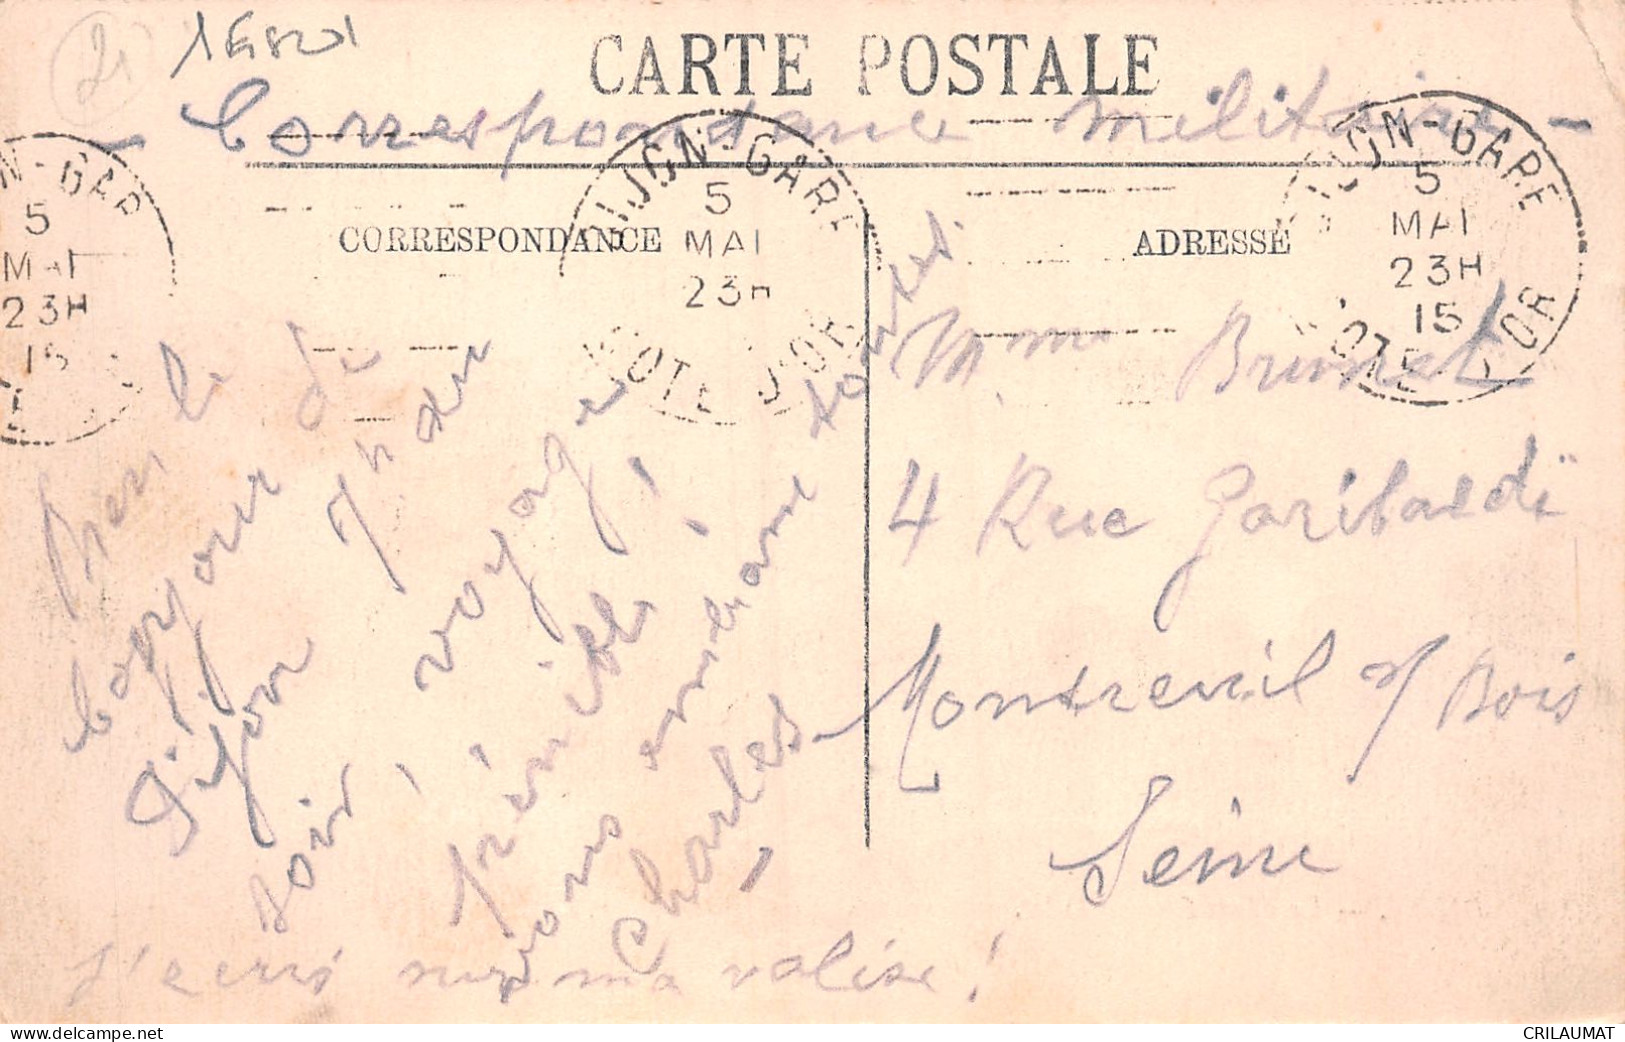 21
CARTE POSTALE
- Correspondance militaire -
DIJON-GARE
5
MAI
23H
15
COTE D'OR
DIJON-GARE
5
MAI
23H
15
COTE D'OR
N-GAR
5
MAI
23H
15
E
CORRESPONDANCE
ADRESSE
Bien le
bonjour de
Dijon 7h du
soir, voyage
pénible !
vous embrasse toutes.
Charles
J'écris sur ma valise !
Mme Brunet
4 Rue Garibaldi
Montreuil s/ Bois
Seine
delcampe.net
CRILAUMAT